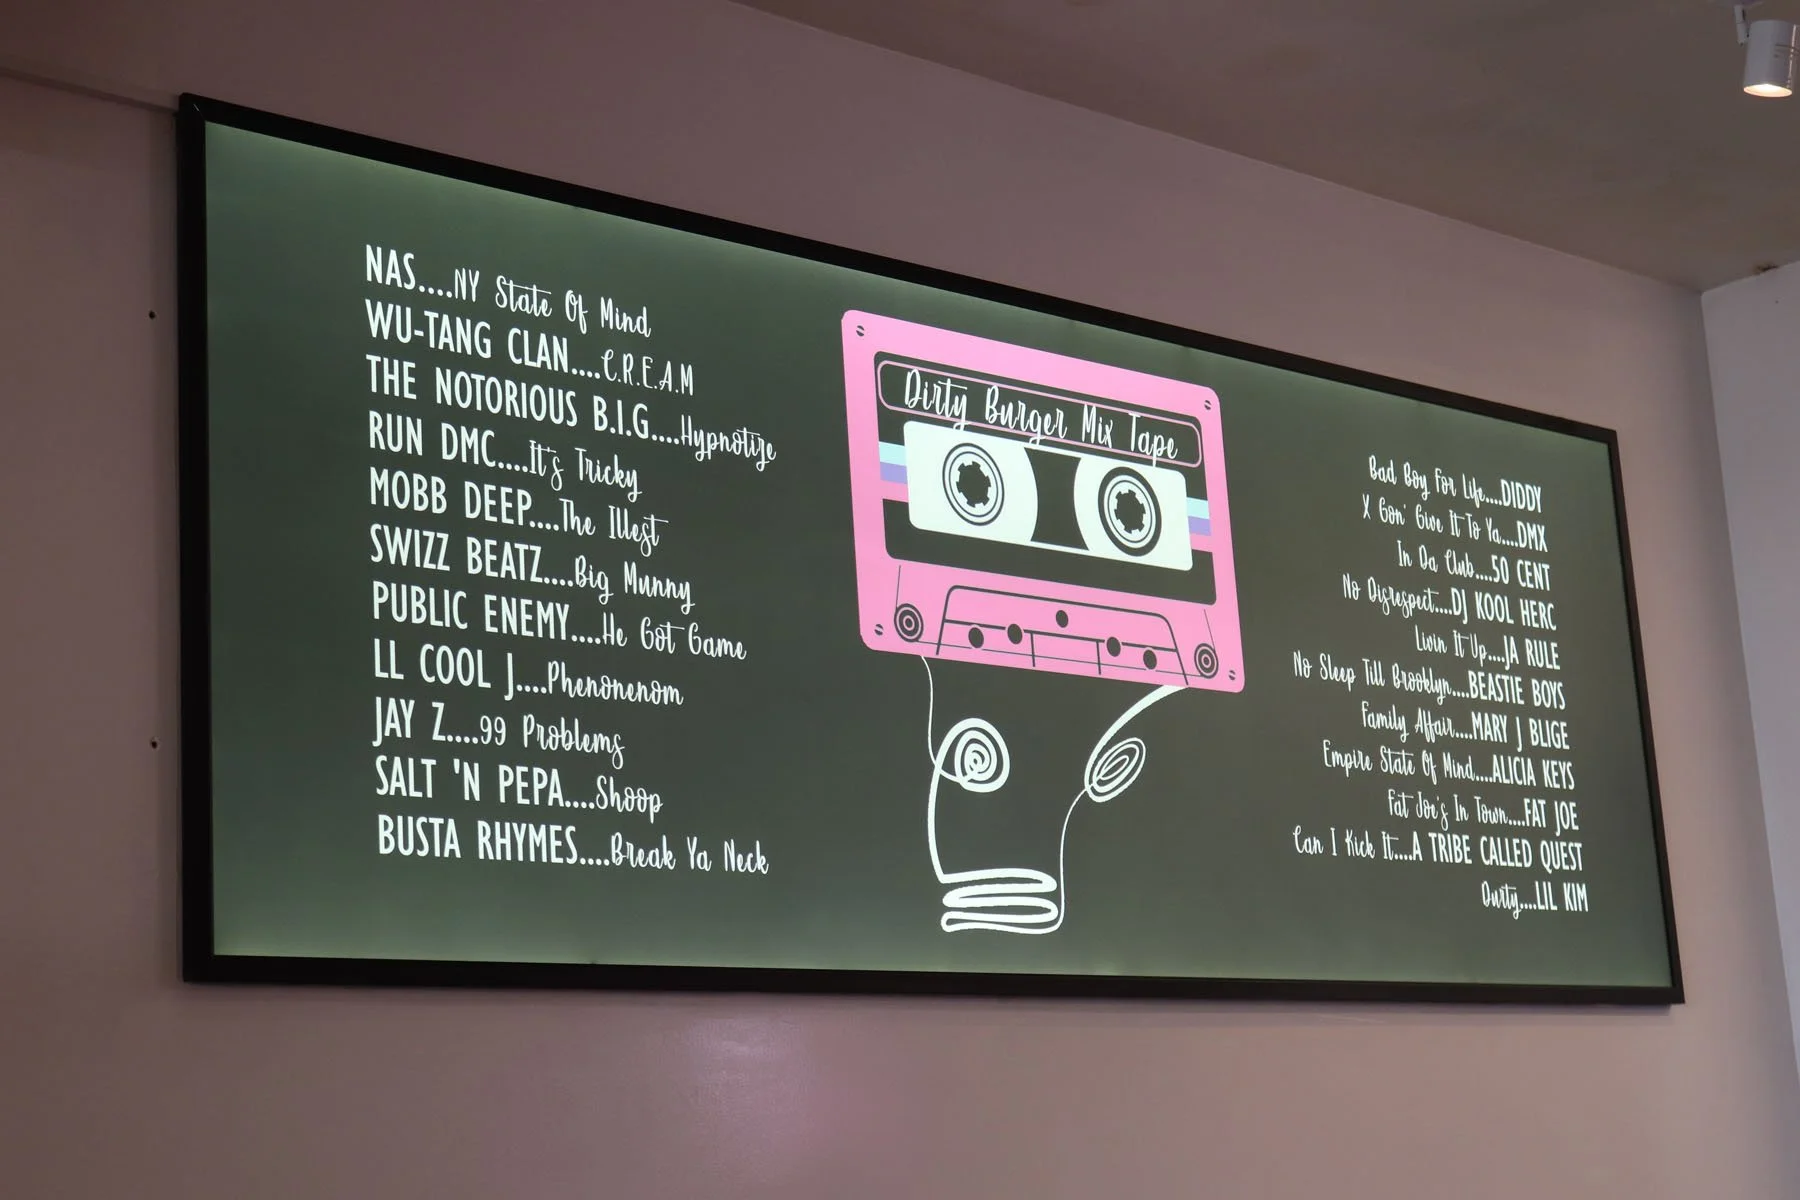 NAS....NY State Of Mind
WU-TANG CLAN....C.R.E.A.M
THE NOTORIOUS B.I.G....Hypnotize
RUN DMC....It's Tricky
MOBB DEEP....The Illest
SWIZZ BEATZ....Big Munny
PUBLIC ENEMY....He Got Game
LL COOL J....Phenonenom
JAY Z....99 Problems
SALT 'N PEPA....Shoop
BUSTA RHYMES....Break Ya Neck
Dirty Burger Mix Tape
Bad Boy For Life....DIDDY
X Gon' Give It To Ya....DMX
In Da Club....50 CENT
No Disrespect....DJ KOOL HERC
Livin It Up....JA RULE
No Sleep Till Brooklyn....BEASTIE BOYS
Family Affair....MARY J BLIGE
Empire State Of Mind....ALICIA KEYS
Fat Joe's In Town....FAT JOE
Can I Kick It....A TRIBE CALLED QUEST
Durty....LIL KIM